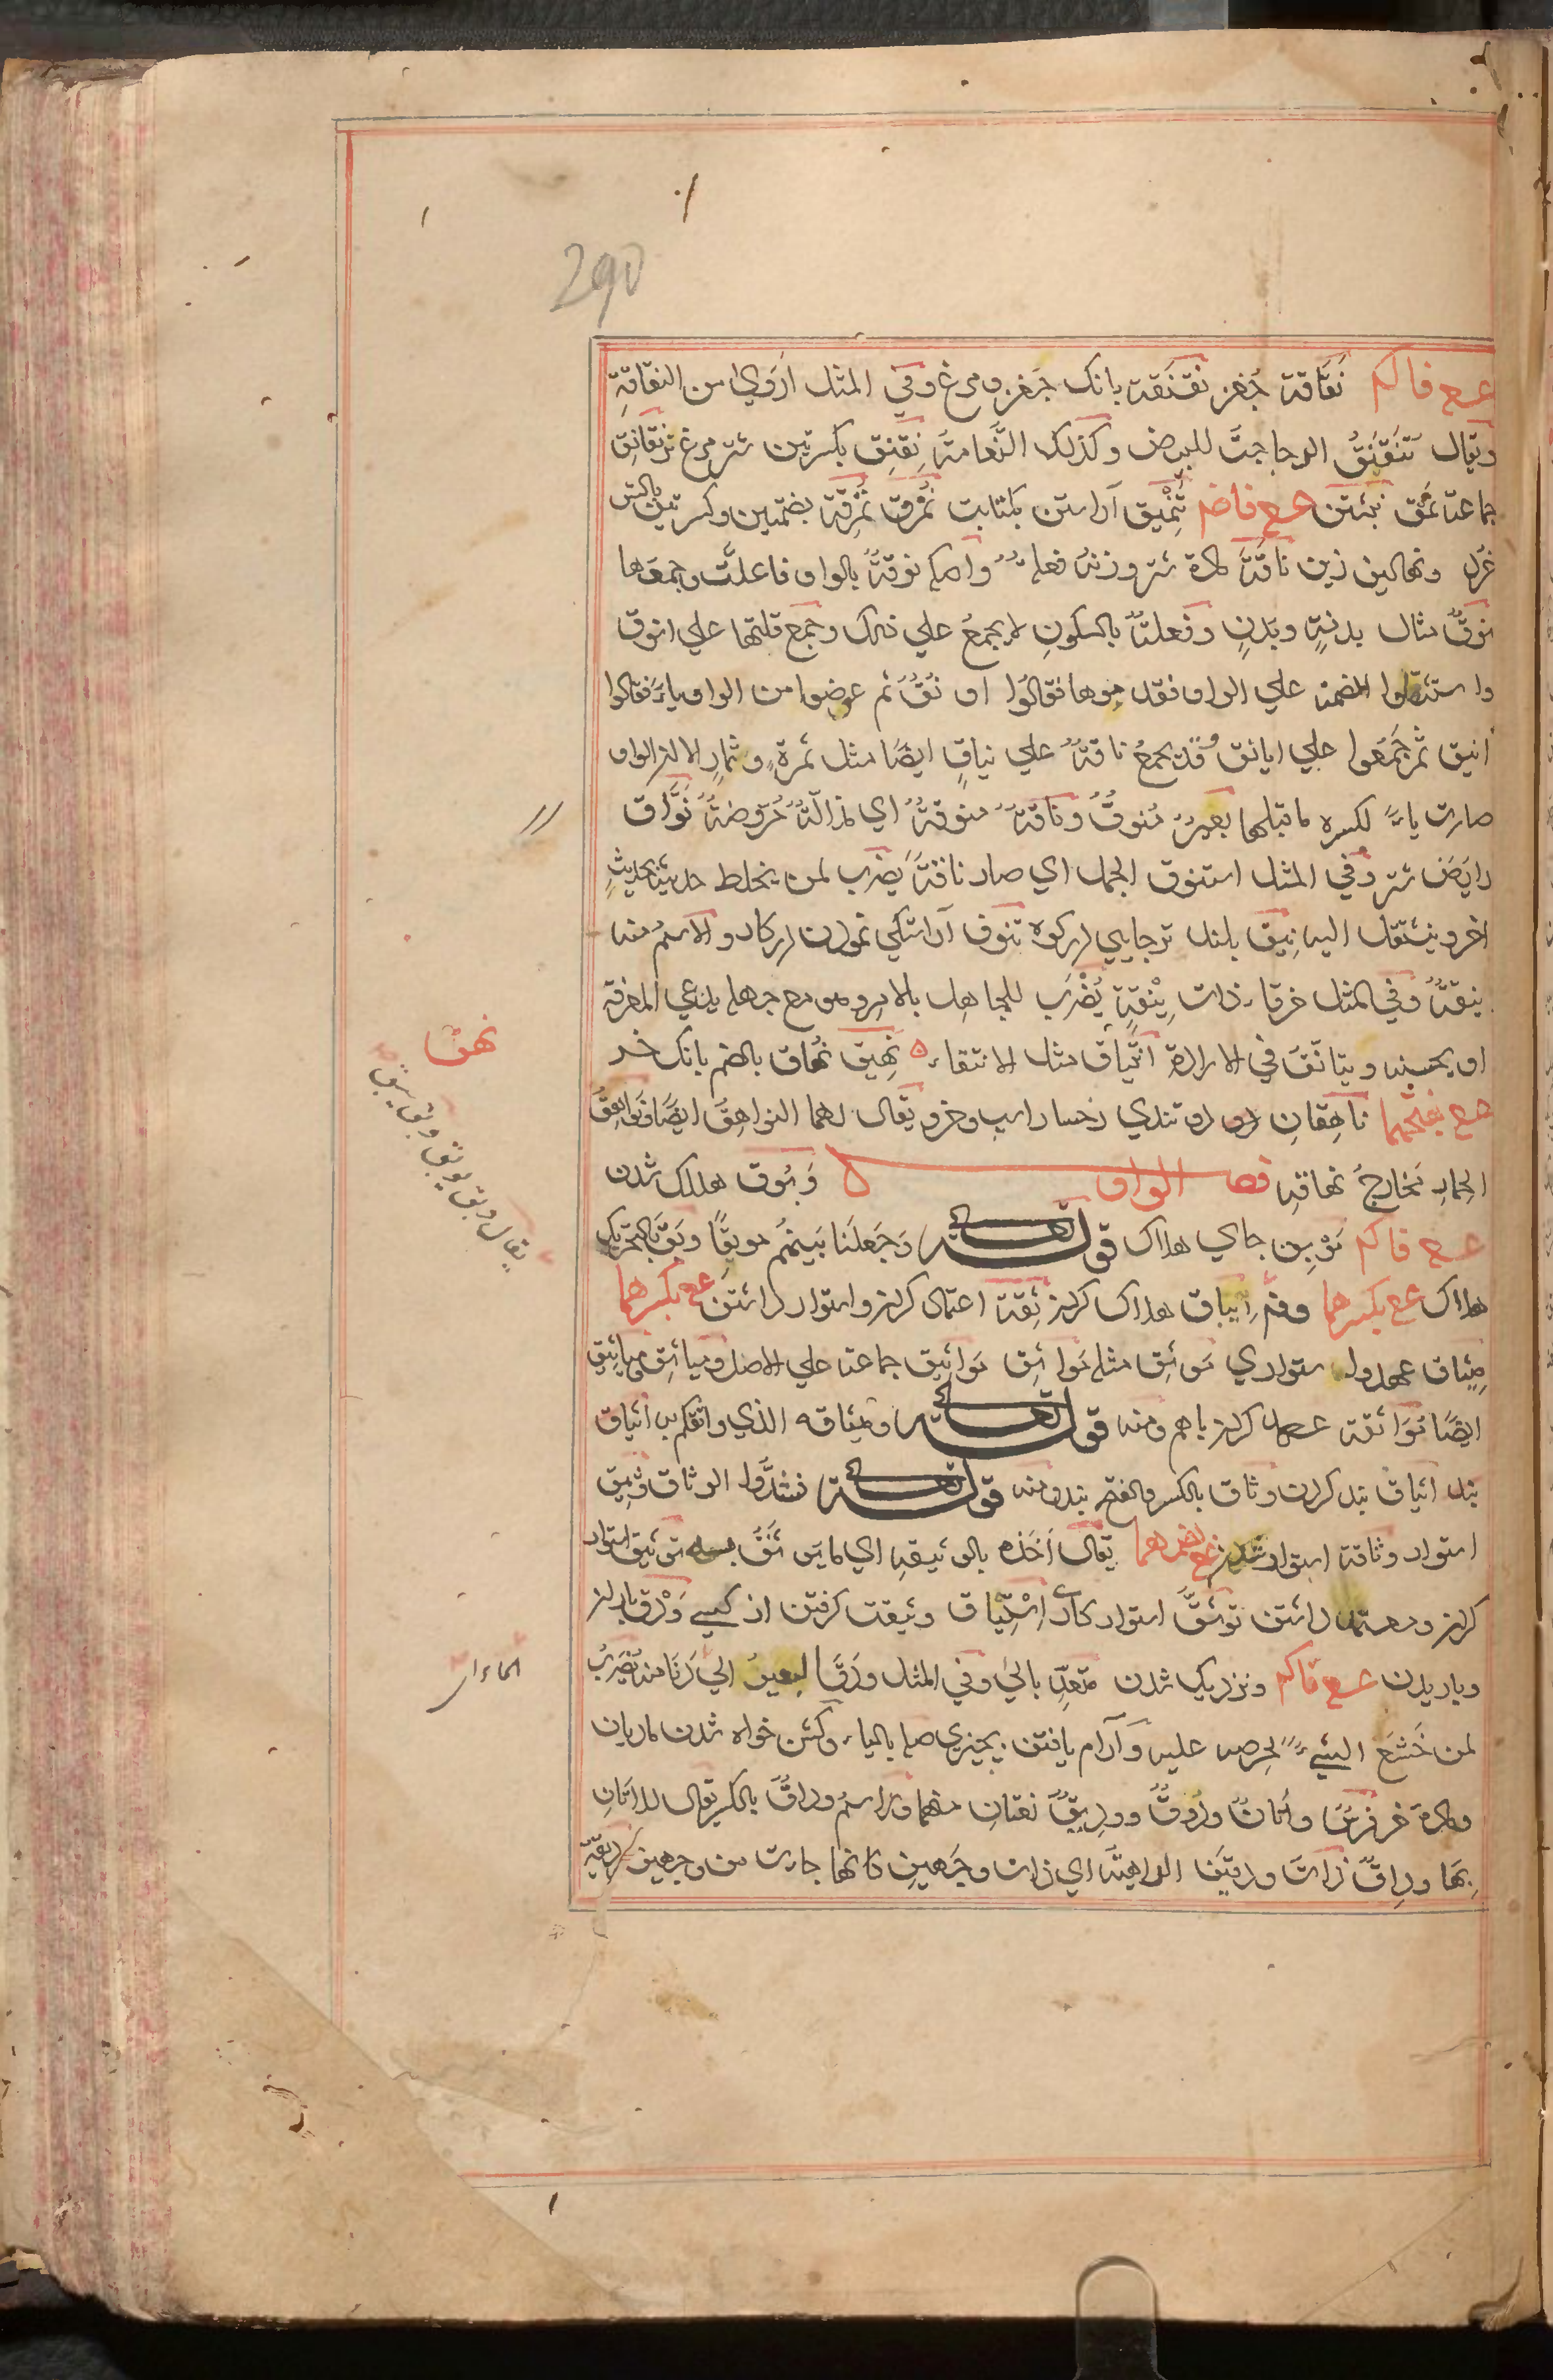 290
عـع فاكم نقاقة جغز نقنقة بانك جغز ومرغ وفي المثل اروي من النقاقة
ويقال تنقنق الدجاجة للبيض وكذلك النعامة نقنق بكسرتين شتر مرغ نر نقانق
جماعة نمق نبشتن عـع فاضم تنميق آراستن بكتابت نمرق نمرقة بضمتين وكسرتين بالش
خرد ونهالين زين ناقة ماده شتر وزنه فعلة واصله نوقة بالواو فاعلت وجمعها
نوق مثال بدنة وبدن وفعلة بالسكون لا يجمع علي ذلك وجمع قلتها علي انوق
واستثقلوا الضمة علي الواو فقدموها فقالوا اونق ثم عوضوا من الواو ياء فقالوا
انيق ثم جمعوا علي ايانق وقد يجمع ناقة علي نياق ايضا مثل ثمرة وثمار الا ان الواو
صارت ياء لكسرة ما قبلها بعير منوق وناقة منوقة اي مذللة مروضة نواق
رايض شتر وفي المثل استنوق الجمل اي صار ناقة يضرب لمن يخلط حديثا بحديث
اخر وينتقل اليه نيق بلند ترجايي در كوه تنوق آراستكي نمودن در كار والاسم منه
نيقة وفي المثل خرقاء ذات نيقة يضرب للجاهل بالامر وهو مع جهله يدعي المعرفة
او يحسنه ويتانق في الارادة انتياق مثل الانتقاء ه نهيق نهاق بالضم بانك خر
عـع بفتحهما ناهقان دو تندي رخسار اسپ وخر ويقال لهما النواهق ايضا ونواهق
الحمار مخارج نهاقه فصل الواو ه وبوق هلاك شدن
عـع فاكم موبق جاي هلاك قوله تعالي وجعلنا بينهم موبقا وبق بالتحريك
هلاك عـع بكسرهما ومنه ايباق هلاك كردن ثقة اعتماد كردن واستوار داشتن عـع بكسرهما
ميثاق عهد واستواري موثق مثله مواثق مواثيق جماعة علي الاصل ومياثق مياثيق
ايضا مواثقة عهد كردن باهم ومنه قوله تعالي وميثاقه الذي واثقكم به ايثاق
بند ايثاق بند كردن وثاق بالكسر والفتح بند ومنه قوله تعالي فشدوا الوثاق وثيق
استوار وثاقة استوار شدن عـع بضمهما يقال اخذه بالوثيقة اي توثيق استوار
كردن ومعتمد داشتن توثق استوار كاري استيثاق وثيقت كرفتن از كسي ودق باران
وباريدن عـع فاكم ونزديك شدن متعد بالي وفي المثل ودق العير الي الماء يضرب
لمن خضع لشيء لحرصه عليه وآرام يافتن بچيزي صله بالياء وكشن خواه شدن ماديان
وماده خر فرس واتان ودوق ووديق نعتان منهما وداق بالكسر يقال للاتان
بها وداق ذات ودقين الداهية اي ذات وجهين كانها جاءت من وجهين
نهق
يقال وبق يوبق وبق يبق
الماء